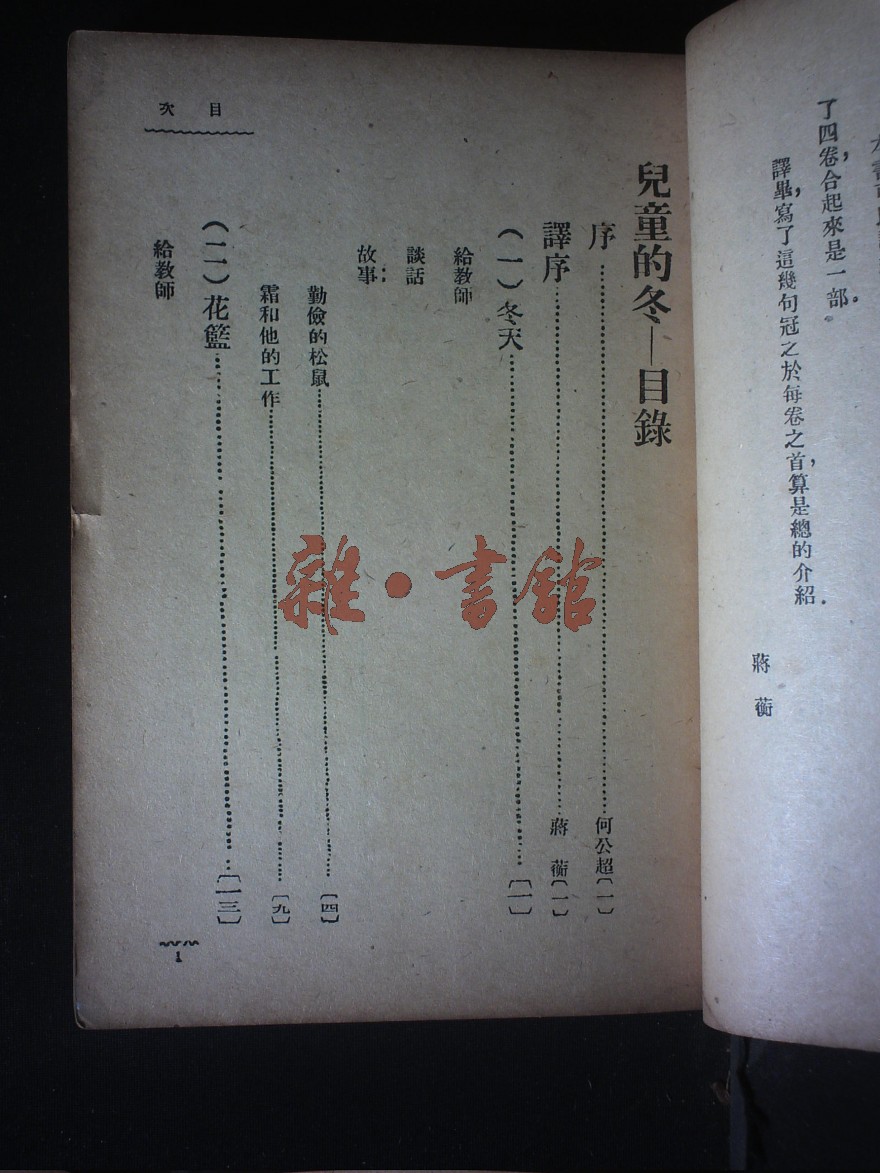 了四卷，合起來是一部。
譯畢，寫了這幾句冠之於每卷之首，算是總的介紹．
蔣蘅
目次
兒童的冬—目錄
序……何公超〔一〕
譯序……蔣蘅〔一〕
（一）冬天……〔一〕
給教師
談話
故事：
勤儉的松鼠……〔四〕
霜和他的工作……〔九〕
（二）花籃……〔一三〕
給教師
1
雜·書館